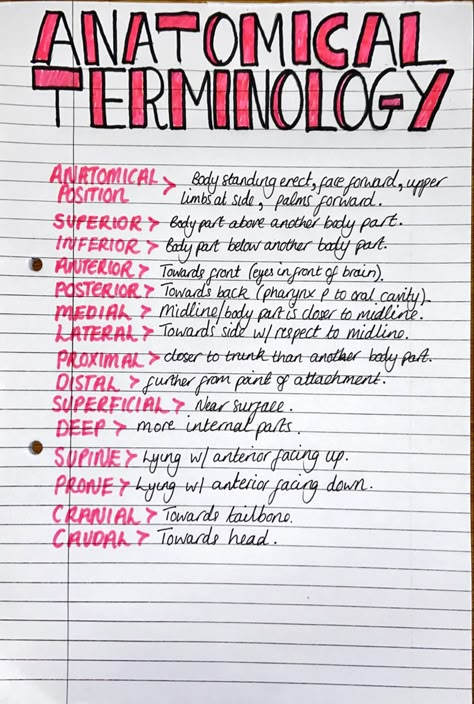 ANATOMICAL
TERMINOLOGY
ANATOMICAL POSITION > Body standing erect, face forward, upper
limbs at side, palms forward.
SUPERIOR > Body part above another body part.
INFERIOR > Body part below another body part.
ANTERIOR > Towards front (eyes in front of brain).
POSTERIOR > Towards back (pharynx p to oral cavity).
MEDIAL > Midline/body part is closer to midline.
LATERAL > Towards side w/ respect to midline.
PROXIMAL > closer to trunk than another body part.
DISTAL > further from point of attachment.
SUPERFICIAL > Near surface.
DEEP > more internal parts.
SUPINE > Lying w/ anterior facing up.
PRONE > Lying w/ anterior facing down.
CRANIAL > Towards tailbone.
CAUDAL > Towards head.